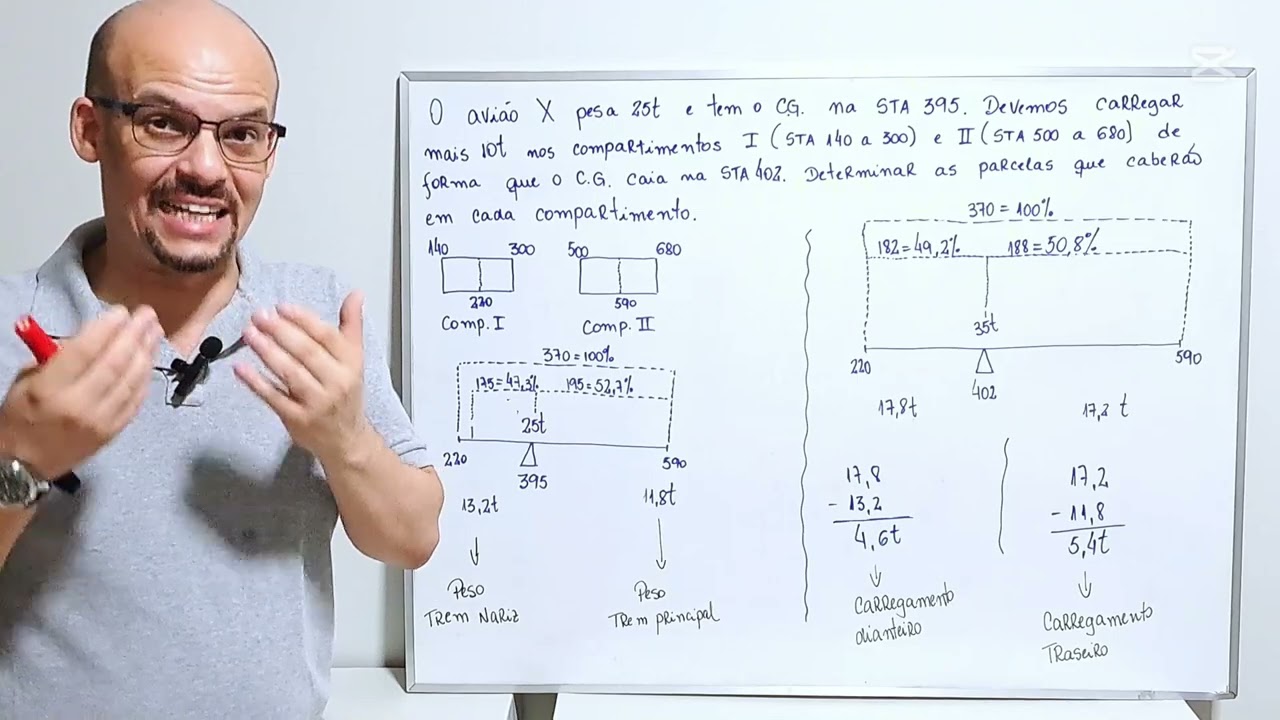 O avião X pesa 25t e tem o C.G. na STA 395. Devemos carregar
mais 10t nos compartimentos I (STA 140 a 300) e II (STA 500 a 680) de
forma que o C.G. caia na STA 402. Determinar as parcelas que caberão
em cada compartimento.
140 300 500 680
220 590
Comp. I Comp. II
370 = 100%
175 = 47,3% 195 = 52,7%
25t
220 395 590
13,2t 11,8t
Peso Peso
Trem Nariz Trem principal
370 = 100%
182 = 49,2% 188 = 50,8%
35t
220 402 590
17,8t 17,2 t
17,8 17,2
- 13,2 - 11,8
4,6t 5,4t
Carregamento Carregamento
dianteiro Traseiro